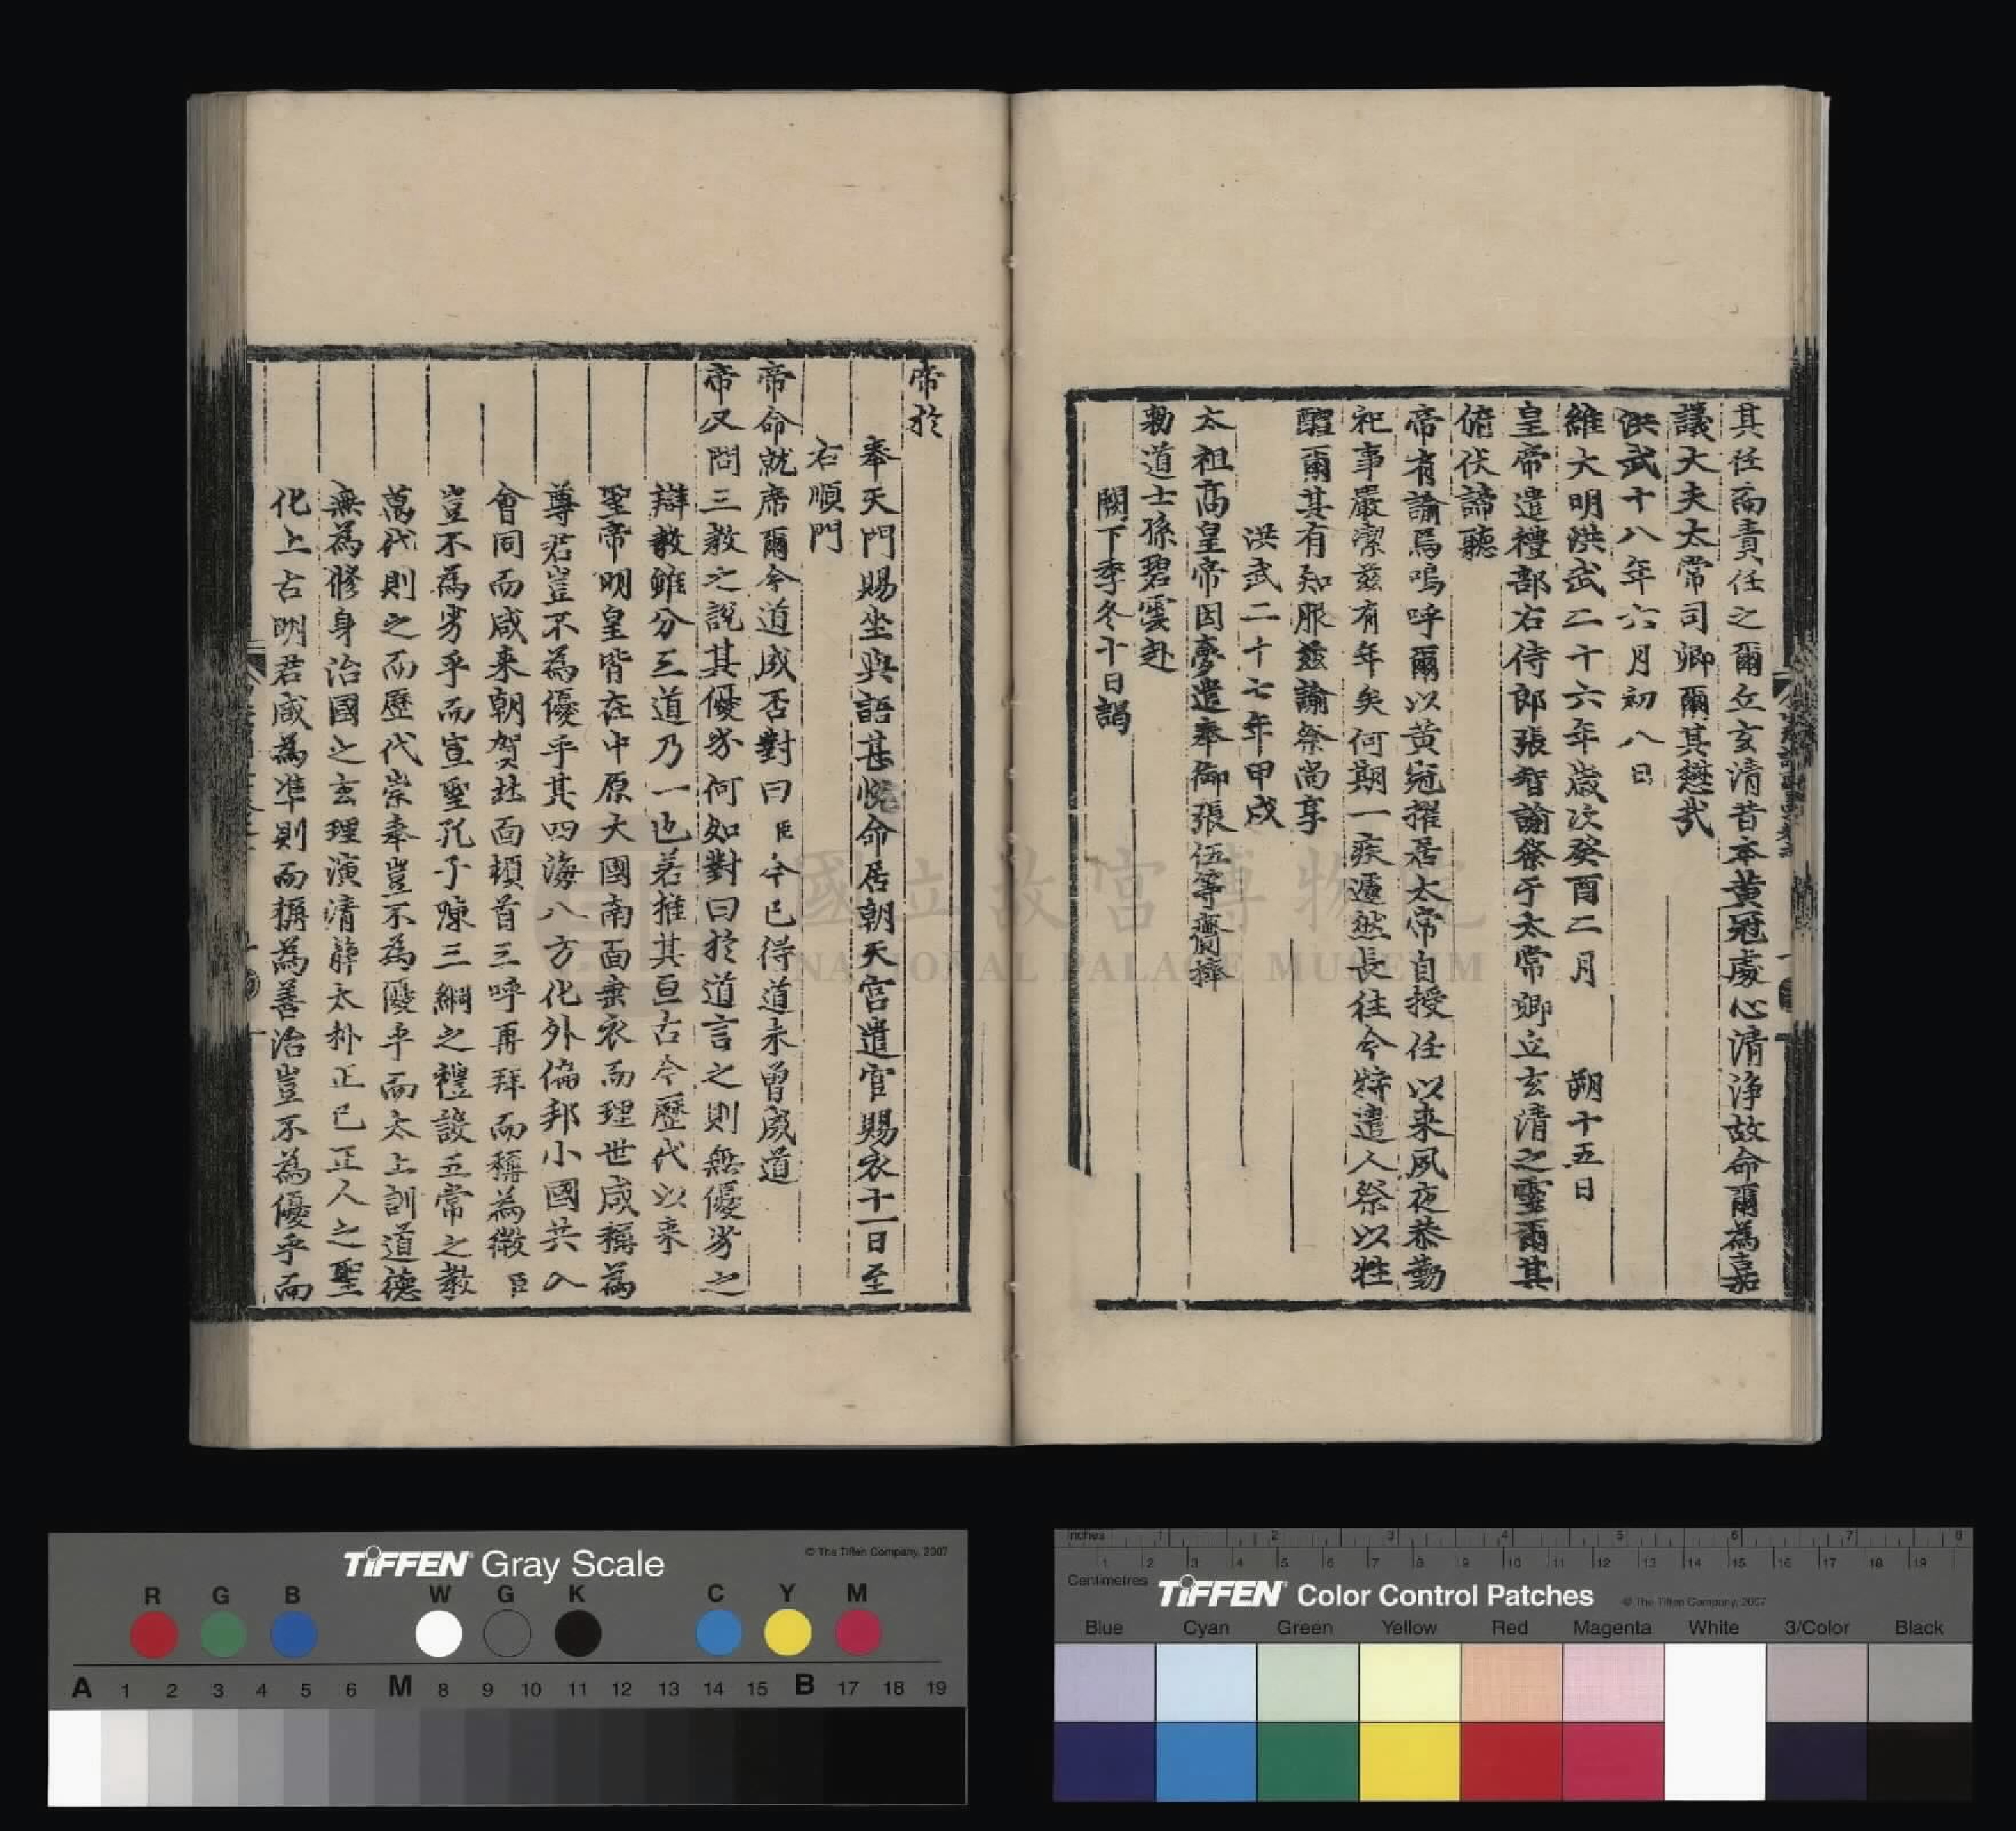 其任而責任之爾丘玄清昔本黃冠處心清淨故命爾為嘉
議大夫太常司卿爾其懋哉
洪武十八年六月初八日
維大明洪武二十六年歲次癸酉二月 朔十五日
皇帝遣禮部右侍郎張智諭祭于太常卿丘玄清之靈爾其
俯伏諦聽
帝有諭焉嗚呼爾以黃冠擢居太常自授任以来夙夜恭勤
祀事嚴潔茲有年矣何期一疾遽然長往今特遣人祭以牲
醴爾其有知服茲諭祭尚享
洪武二十七年甲戌
太祖高皇帝因夢遣奉御張伍等齎捧
勑道士孫碧雲赴
闕下季冬十日謁
帝於
奉天門賜坐與語甚悅命居朝天宮遣官賜衣十一日至
右順門
帝命就席爾今道成否對曰臣今已得道未曾成道
帝又問三教之說其優劣何如對曰於道言之則無優劣之
辯教雖分三道乃一也若推其亘古今歷代以来
聖帝明皇皆在中原大國南面垂衣而理世咸稱為
尊君豈不為優乎其四海八方化外偏邦小國共入
會同而咸来朝賀北面頓首三呼再拜而稱為微臣
豈不為劣乎而宣聖孔子陳三綱之禮設五常之教
萬代則之而歷代崇奉豈不為優乎而太上訓道德
無為修身治國之玄理演清靜太朴正已正人之聖
化上古明君咸為準則而稱為善治豈不為優乎而
國立故宮博物院
NATIONAL PALACE MUSEUM
TIFFEN Gray Scale
© The Tiffen Company, 2007
R G B W G K C Y M
A 1 2 3 4 5 6 M 8 9 10 11 12 13 14 15 B 17 18 19
Inches 1 2 3 4 5 6 7 8
1 2 3 4 5 6 7 8 9 10 11 12 13 14 15 16 17 18 19
Centimetres
TIFFEN Color Control Patches
© The Tiffen Company, 2007
Blue Cyan Green Yellow Red Magenta White 3/Color Black